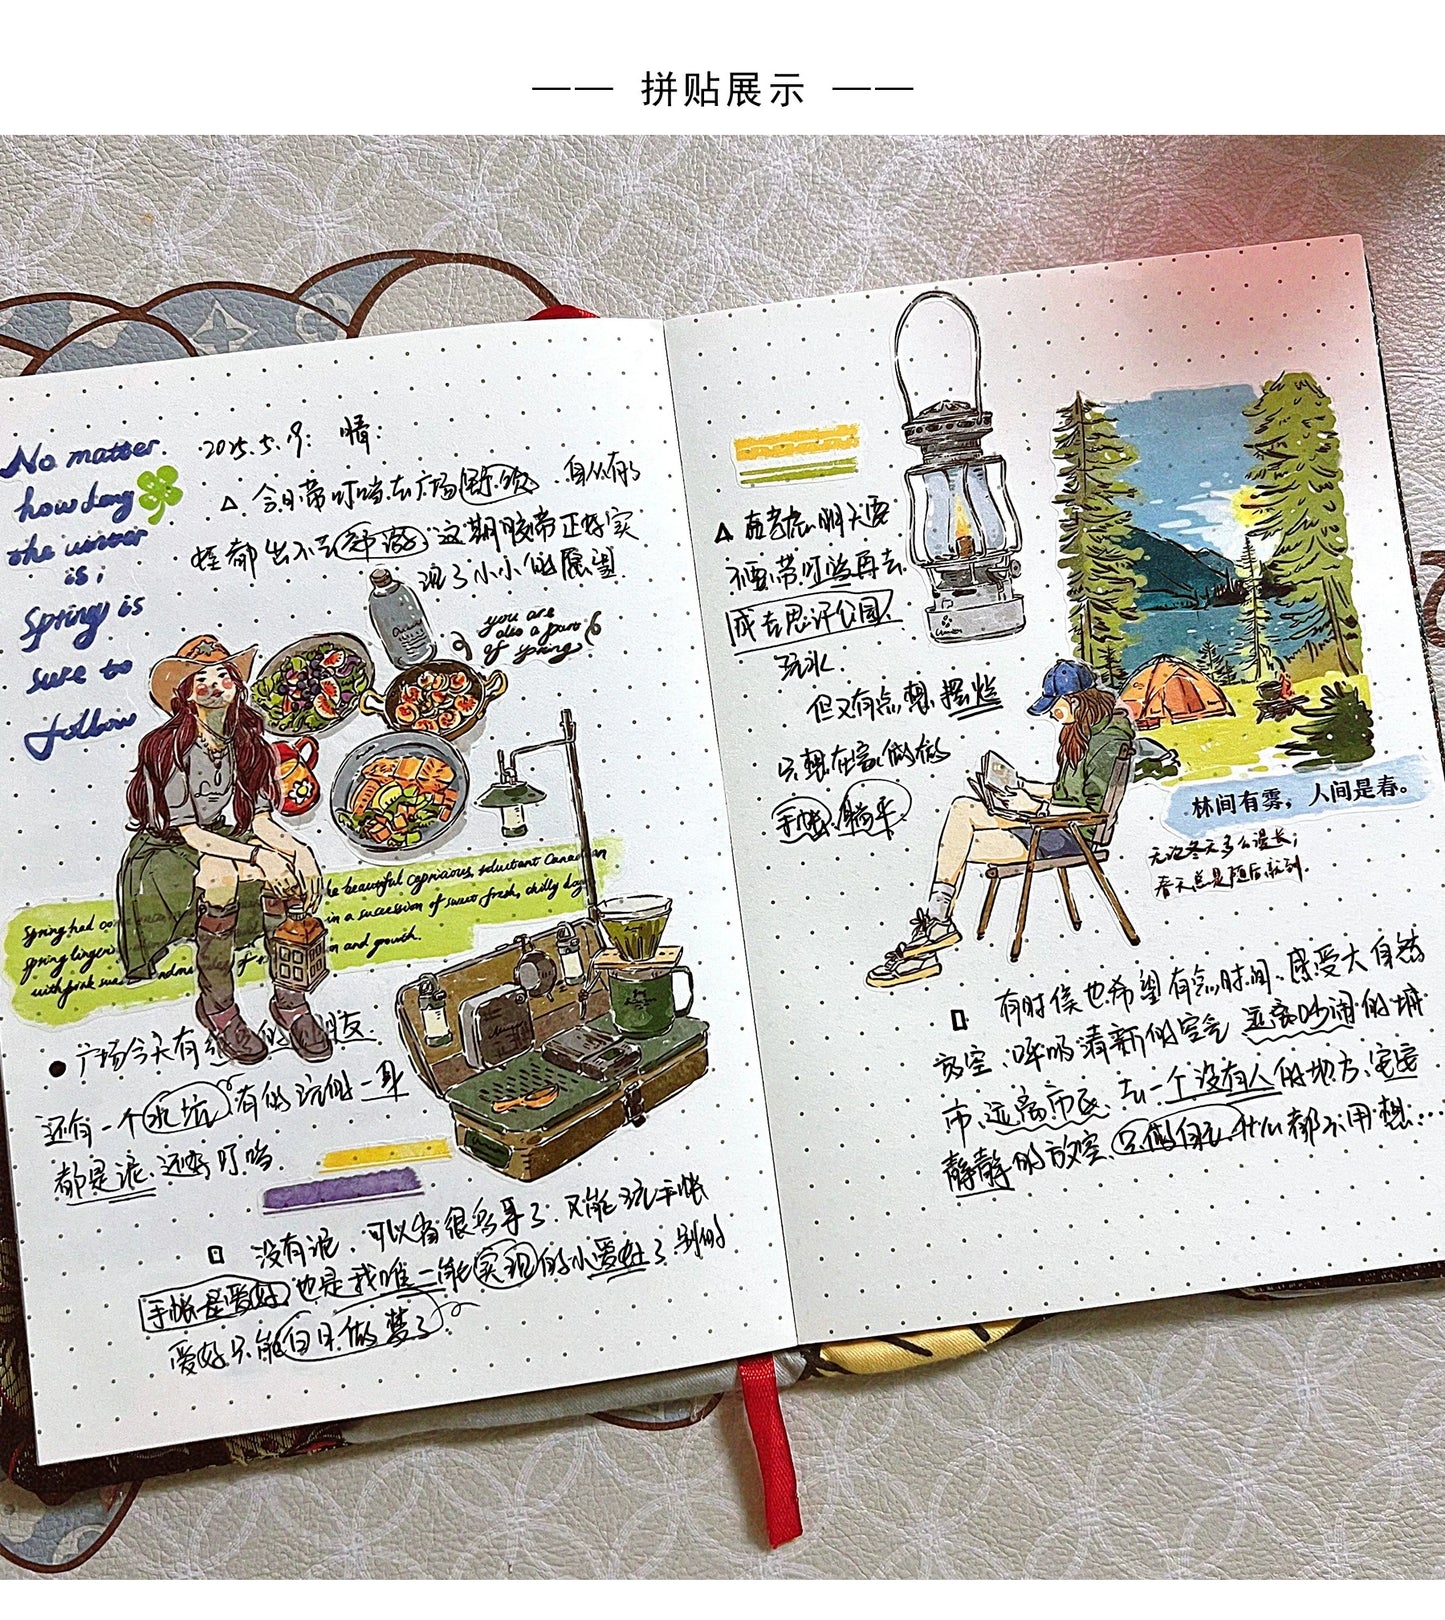 —— 拼贴展示 ——
No matter
how long
the winter
is,
Spring is
sure to
follow
2025.5.9: 晴:
△ 今日带叮当去广场野饮 自从有了
娃都出不了郊游 这期胶带正好实
现了小小的愿望
you are
also a part
of spring
Spring had come the beautiful capricious, reluctant Canadian
spring lingering in a succession of sweet fresh, chilly days
with pink and growth.
● 广场今天有 的 朋友
还有一个水坑 有的玩的一身
都是泥 还好叮当
没有泥 可以省很多事了 又能玩手帐
手帐是爱好 也是我唯一能实现的小爱好了 别的
爱好只能白日做梦了
△ 在考虑明天要
不要带叮当再去
成吉思汗公园
玩水
但又有点想摆烂
只想在家做做
手帐 躺平
林间有雾，人间是春。
无论冬天多么漫长；
春天总是随后就到.
有时候也希望有点时间、感受大自然
放空、呼吸清新的空气 远离吵闹的城
市、远离市区 去一个没有人的地方、安安
静静的放空、只做自己、什么都不用想…